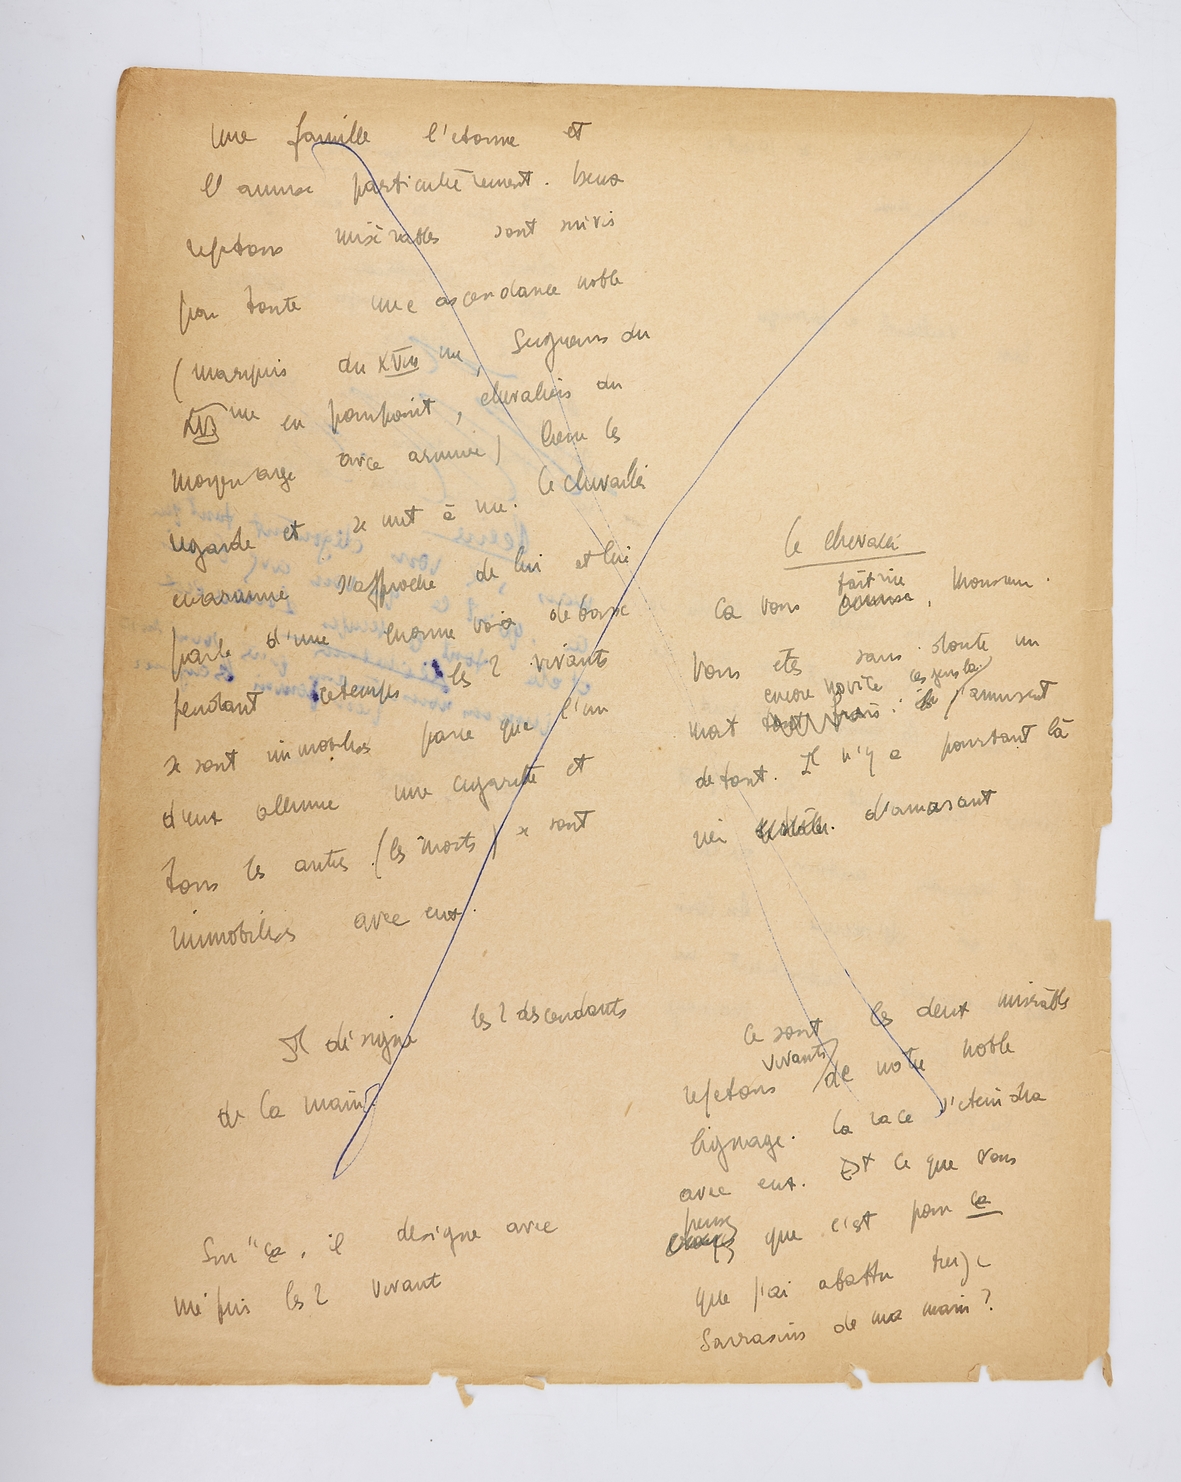 Une famille l'etonne et
l'amuse particulièrement. Deux
rejetons misérables sont suivis
par toute une ascendance noble
(marquis du XVIII me, Seigneurs du
XVI me en pourpoint, chevaliers du
moyen age avec armure) Pierre les
regarde et se met à rire. Le chevalier
en armure s'approche de lui et lui
parle d'une enorme voix de basse
pendant ce temps les 2 vivants
se sont immobilisés parce que l'un
d'eux allume une cigarette et
tous les autres (les morts) se sont
immobilisés avec eux.
Il désigne les 2 descendants
de la main.
Sur "ça, il designe avec
mépris les 2 vivant
Le chevalier
fait rire
Ca vous amuse, Monsieur.
Vous etes sans doute un
encore novice ces gens là
mort tout frais : ils s'amusent
de tout. Il n'y a pourtant là
rien d'amusant
Ce sont les deux misérables
vivants
rejetons de notre noble
lignage. La race s'éteindra
avec eux. Est ce que vous
pensez
croyez que c'est pour ça
que j'ai abattu treize
Sarrasins de ma main ?